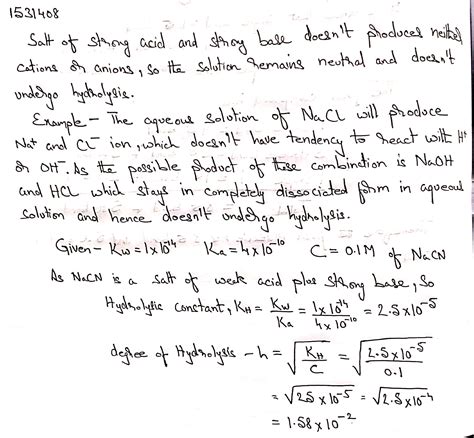 1531408
Salt of strong acid and strong base doesn't produces neither
cations or anions, so the solution remains neutral and doesn't
undergo hydrolysis.
Example - The aqueous solution of NaCl will produce
Na⁺ and Cl⁻ ion, which doesn't have tendency to react with H⁺
or OH⁻. As the possible product of these combination is NaOH
and HCl which stays in completely dissociated form in aqueous
solution and hence doesn't undergo hydrolysis.
Given - Kw = 1x10¹⁴ Ka = 4x10⁻¹⁰ C = 0.1M of NaCN
As NaCN is a salt of weak acid plus strong base, so
Hydrolytic constant, KH = Kw/Ka = 1x10¹⁴/4x10⁻¹⁰ = 2.5x10⁻⁵
degree of Hydrolysis - h = √(KH/C) = √(2.5x10⁻⁵/0.1)
= √25x10⁻⁵ = √2.5x10⁻⁴
= 1.58x10⁻²